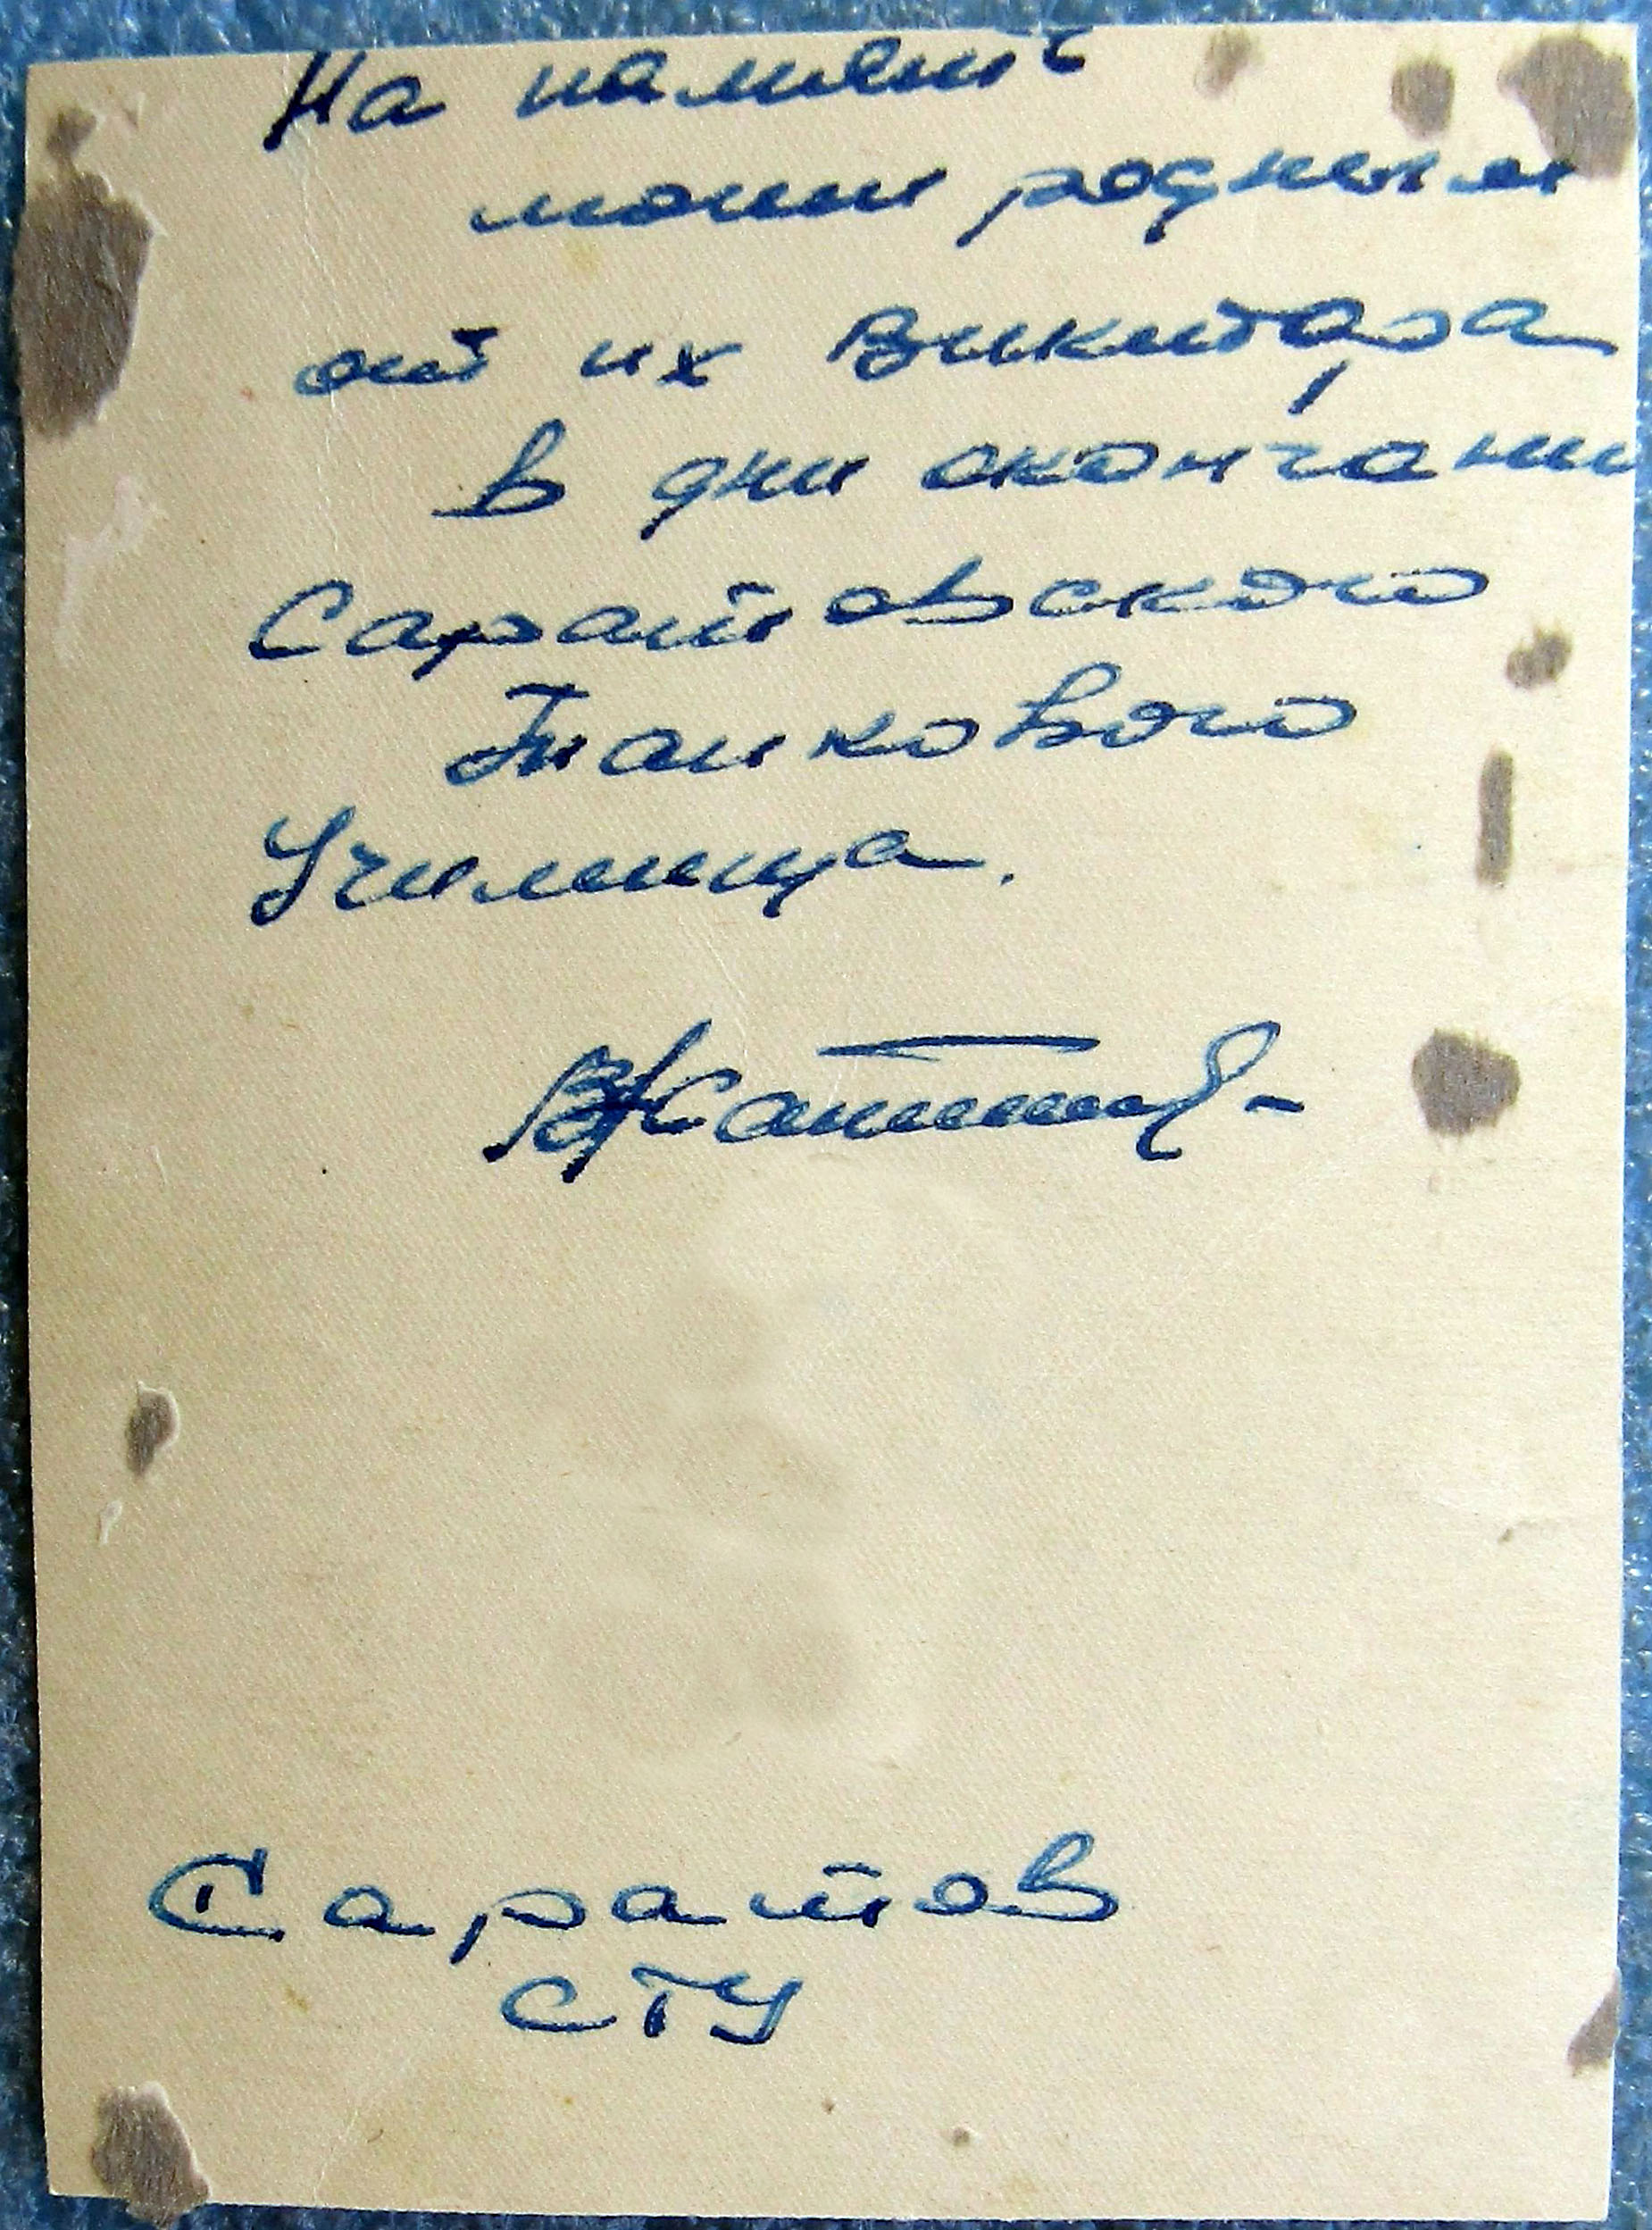 На память
моим родным
от их Виктора
в дни окончани
Саратовского
Танкового
Училища.
Саратов
СТУ